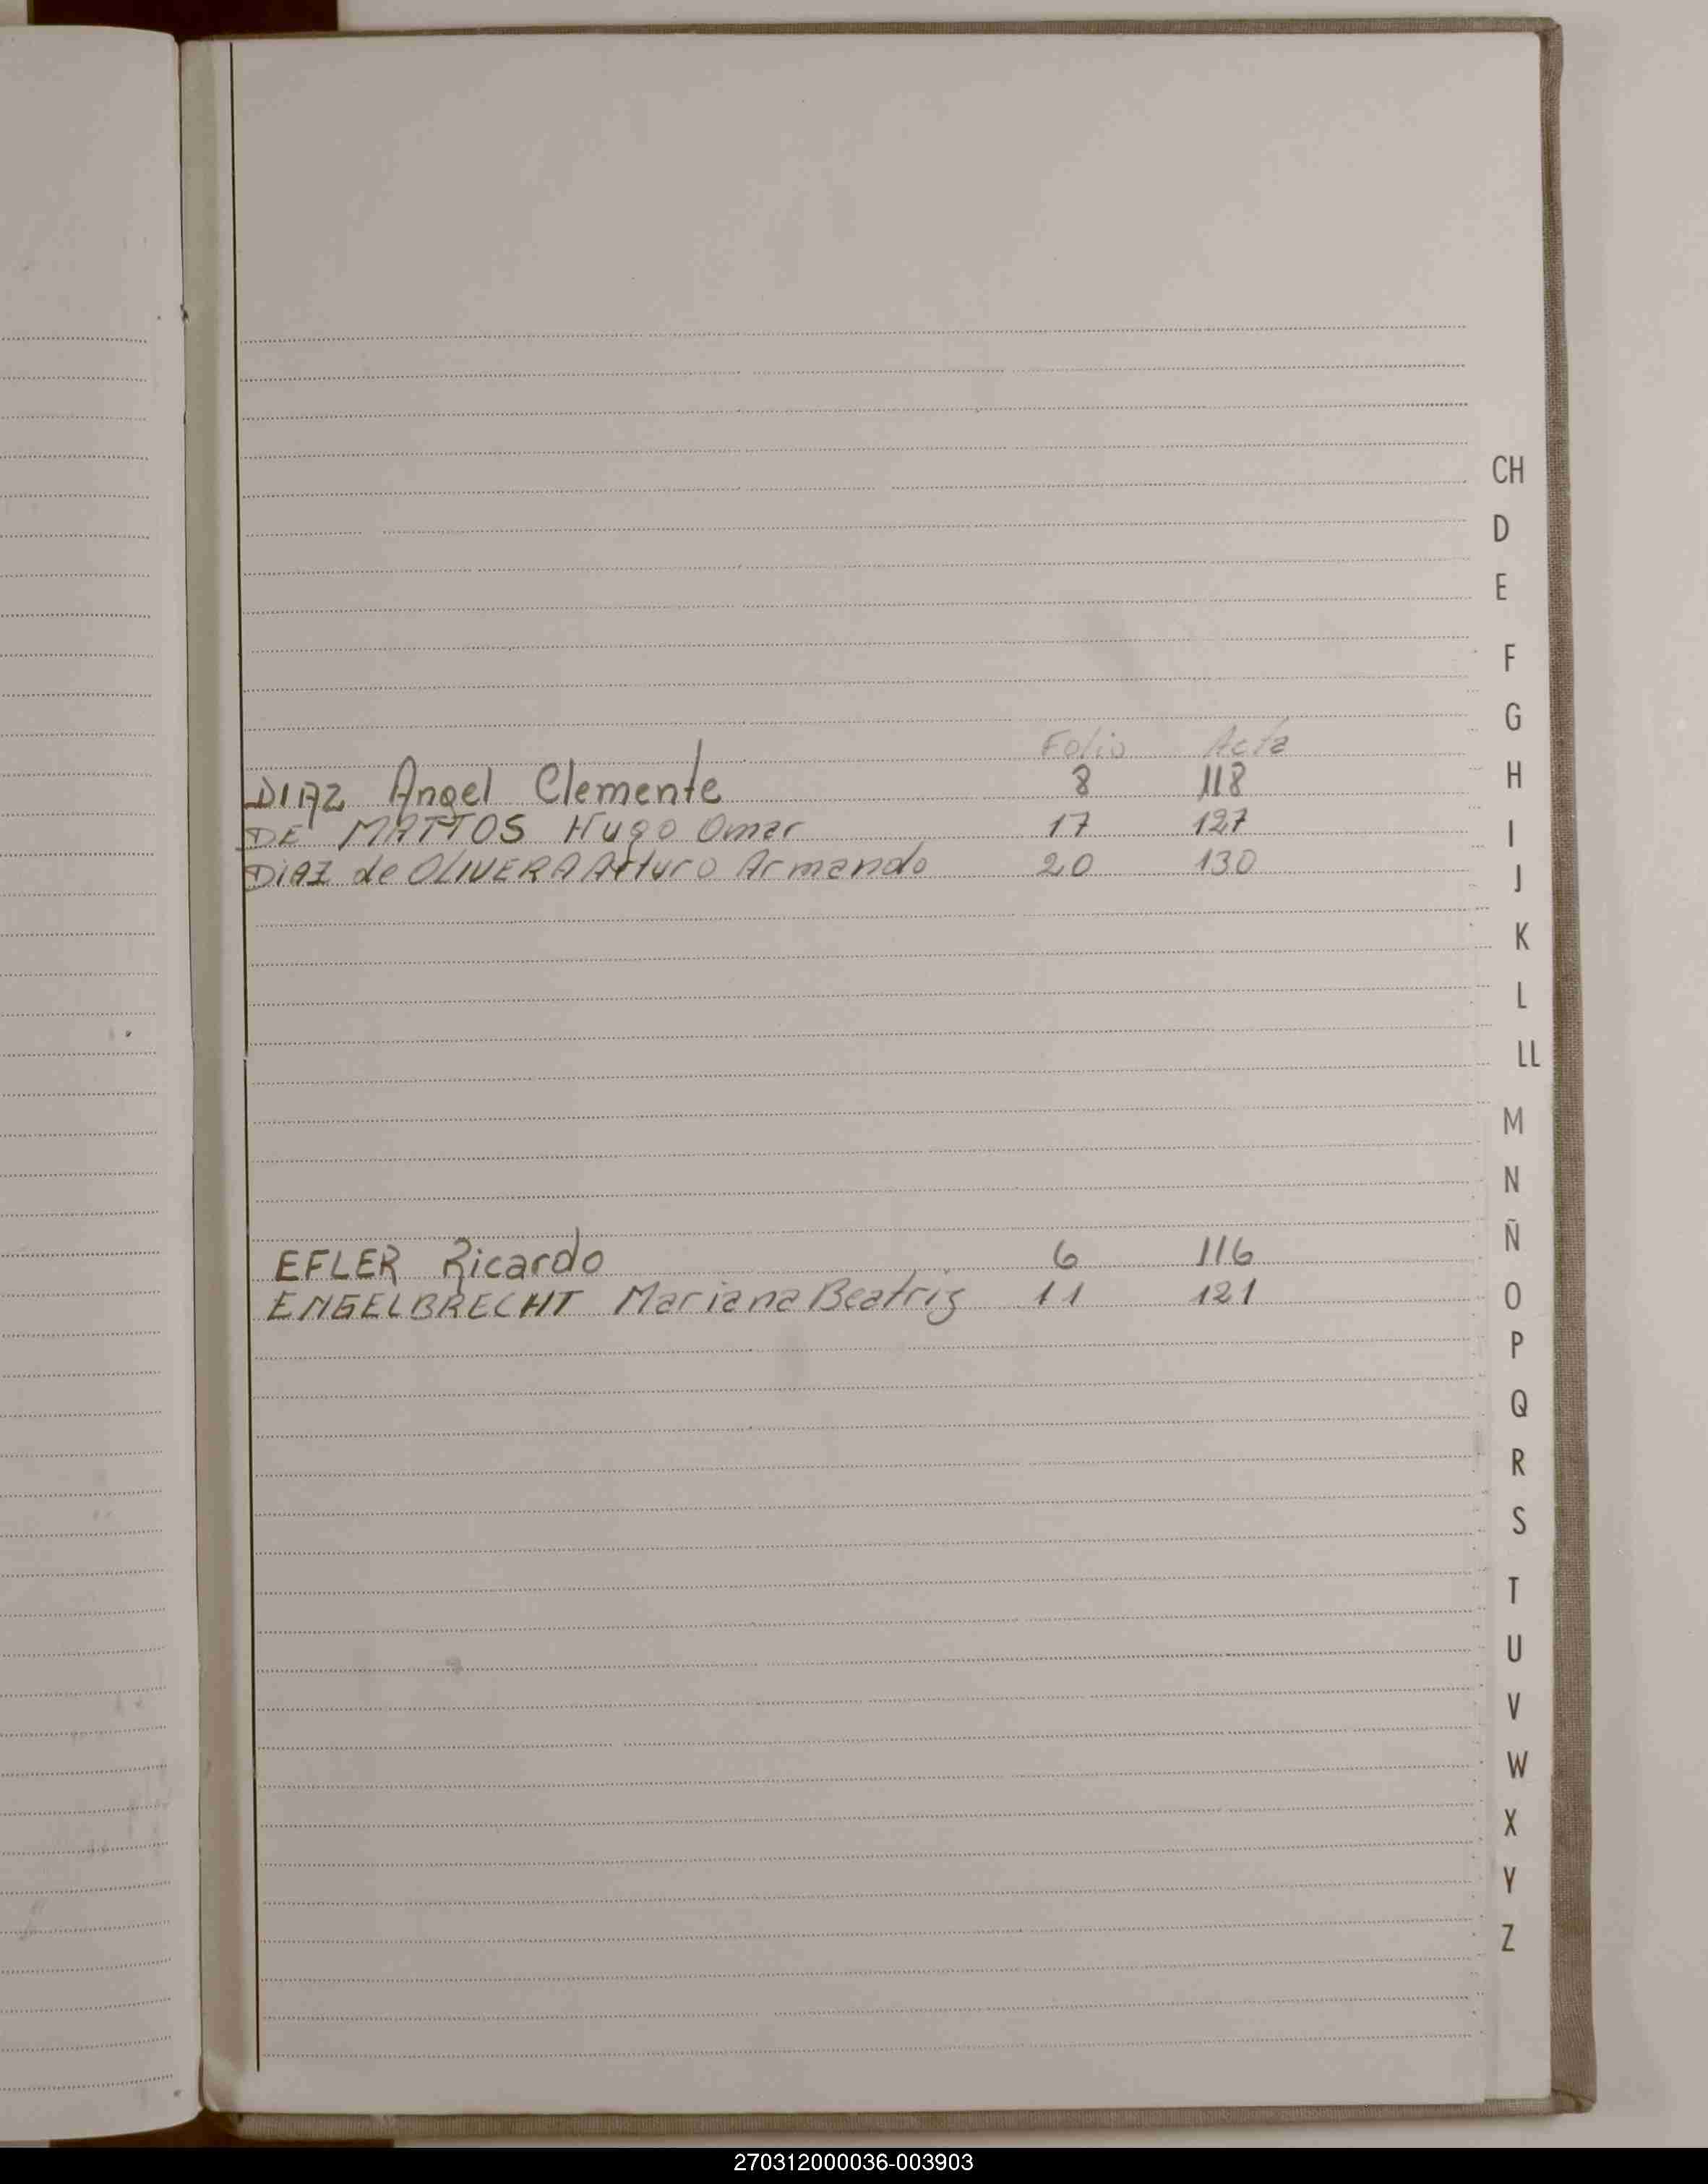 Folio Acta
DIAZ Angel Clemente 8 118
DE MATTOS Hugo Omar 17 127
DIAZ de OLIVERA Arturo Armando 20 130
EFLER Ricardo 6 116
ENGELBRECHT Mariana Beatriz 11 121
CH
D
E
F
G
H
I
J
K
L
LL
M
N
Ñ
O
P
Q
R
S
T
U
V
W
X
Y
Z
270312000036-003903